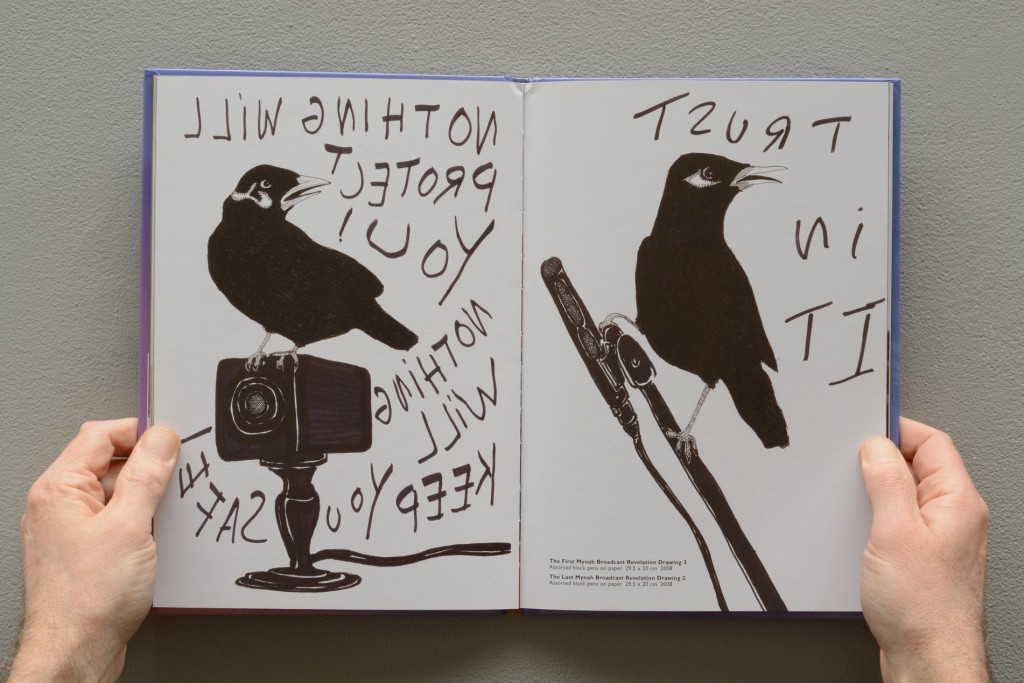 NOTHING WILL
PROTECT
YOU!
NOTHING
WILL
KEEP YOU
SAFE
TRUST
IN
IT
The First Mynah Broadcast Revelation Drawing 3
Assorted black pens on paper 29.5 x 20 cm 2008
The Last Mynah Broadcast Revelation Drawing 2
Assorted black pens on paper 29.5 x 20 cm 2008